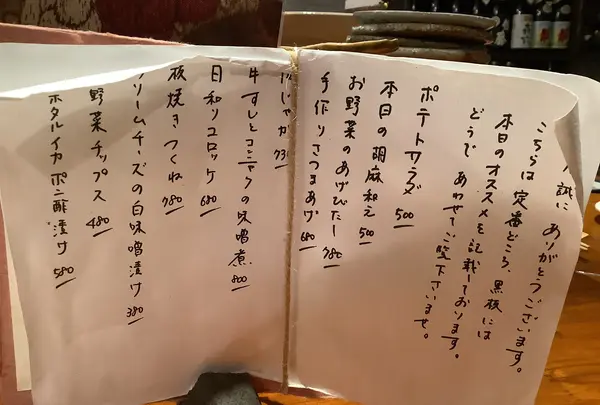 誠に ありがとうございます。
こちらは 定番どころ、黒板には
本日のオススメを記載しております。
どうぞ あわせてご覧下さいませ。
ポテトサラダ 500
本日の胡麻和え 500
お野菜のあげびたし 780
手作りさつまあげ 680
じゃが 730
牛すじとコンニャクの味噌煮 800
日和りコロッケ 680
板焼きつくね 780
リームチーズの白味噌漬け 380
野菜チップス 480
ホタルイカ ポン酢漬け 580